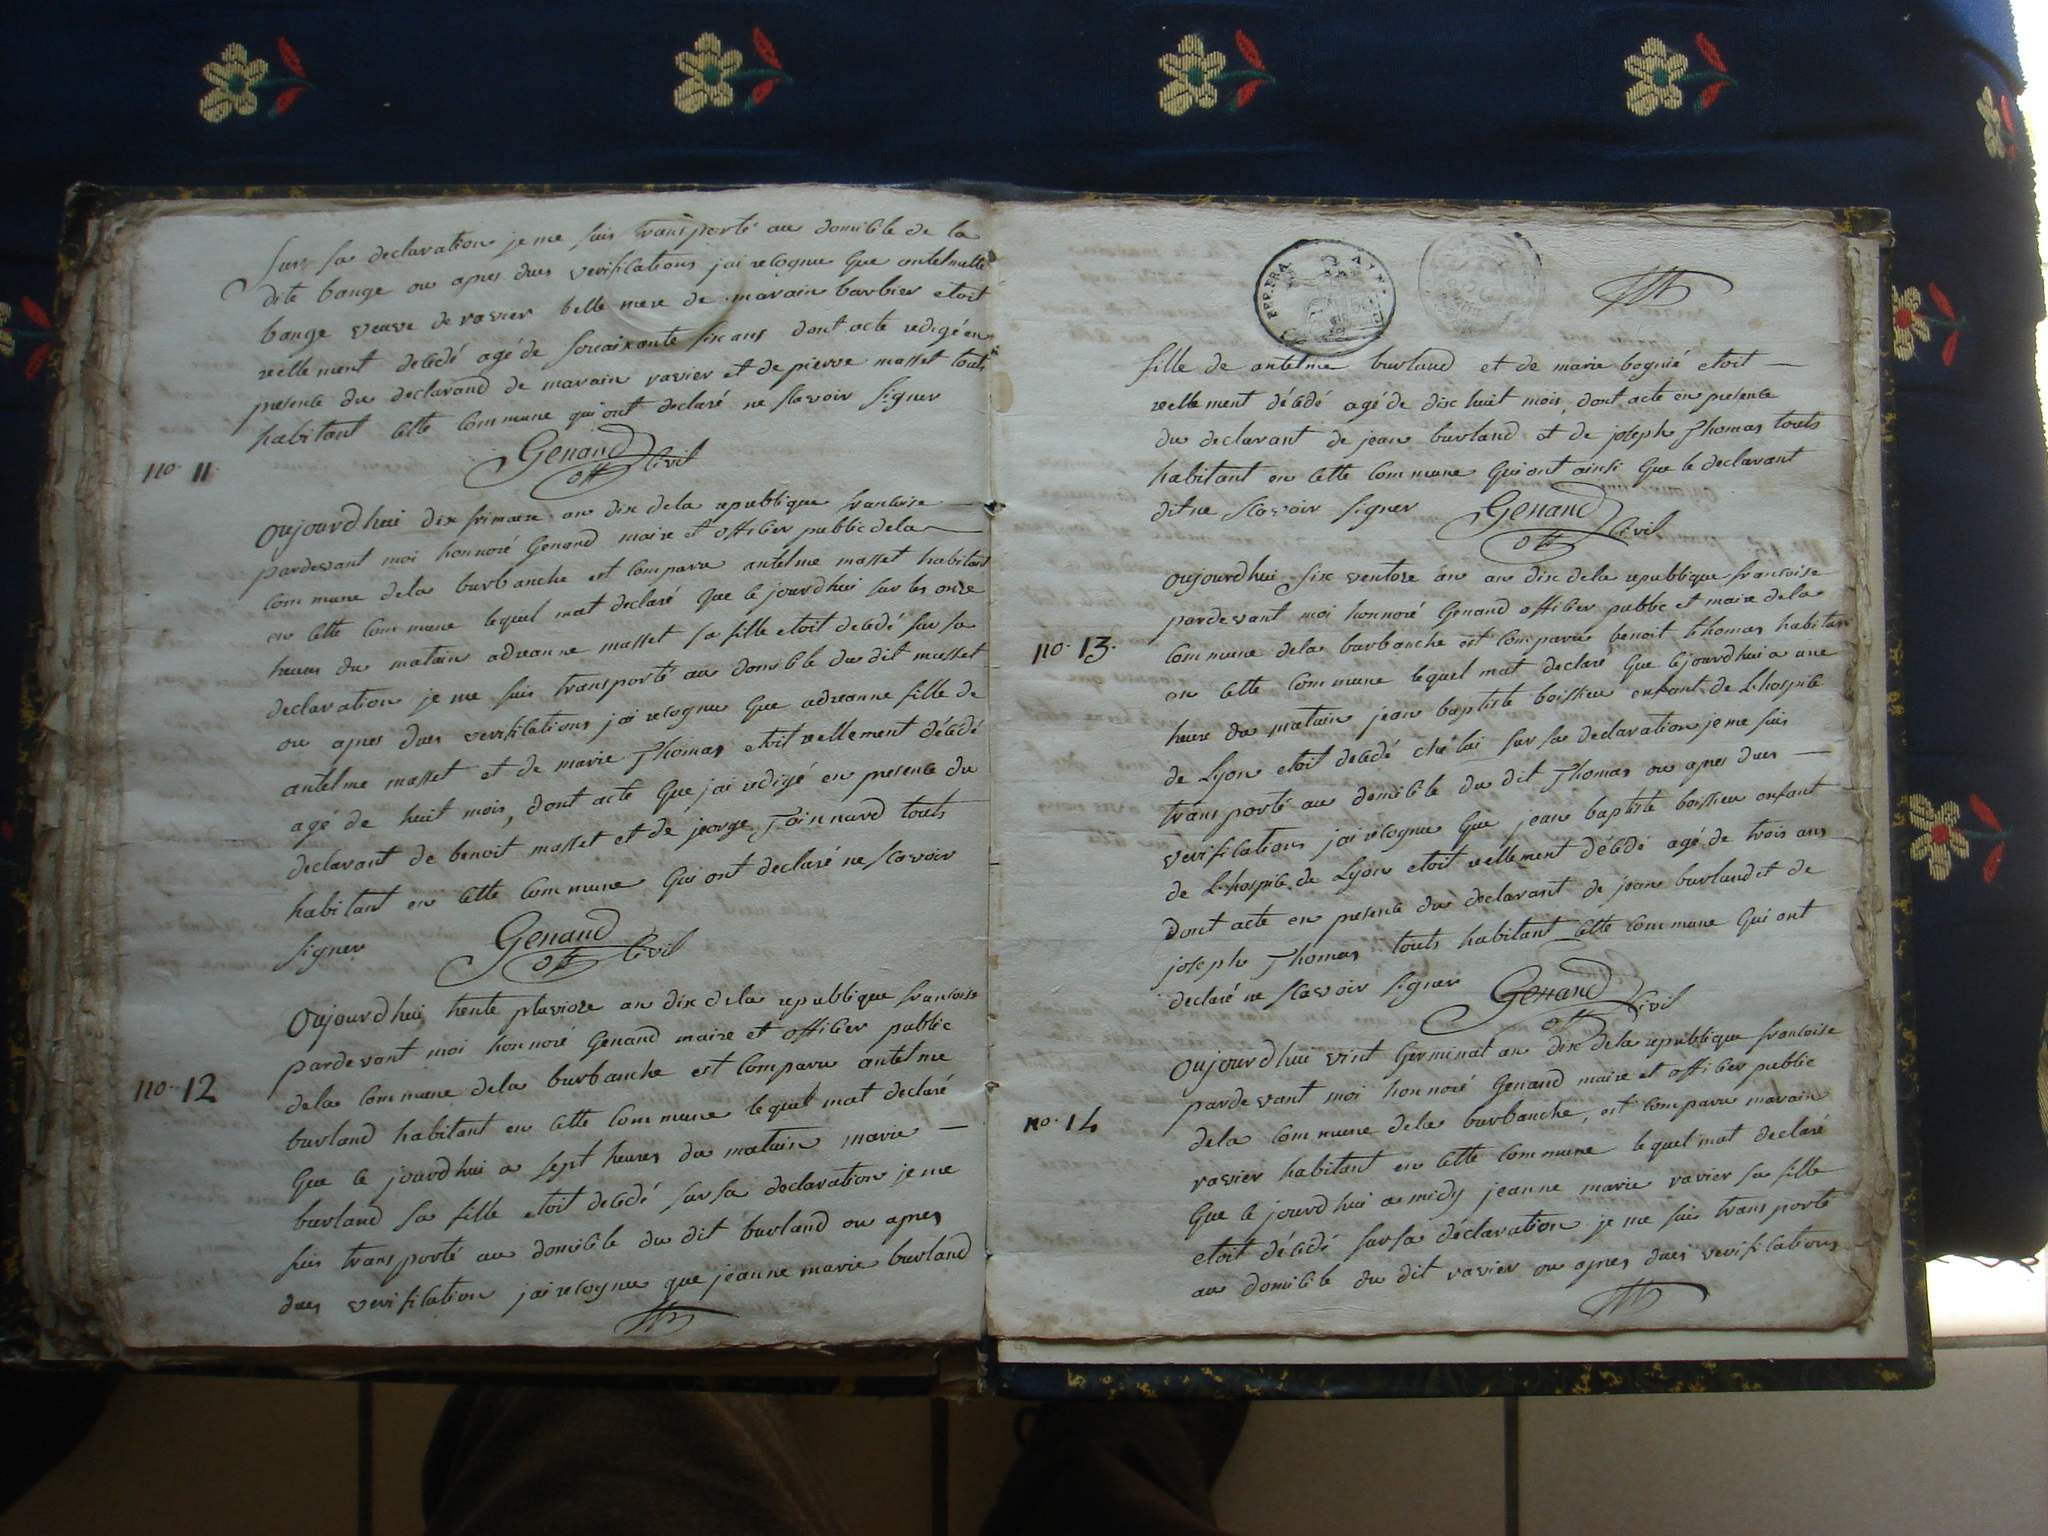 sur sa declaration je me suis transporté au domicile de la
dite bange ou apres dues verifications jai recognu que antelmette
bange veuve de ravier belle mere de marain barbier etoit
reellement decedé agé de souaixante six ans dont acte redigé en
presence du declarand de marain ravier et de pierre masset touts
habitant cette commune qui ont declaré ne scavoir signer
Genand
off civil
no. 11.
oujourdhui dix frimaire an dix dela republique francoise
pardevant moi honnoré Genand maire et officier public dela
commune dela burbanche est comparu antelme masset habitant
en cette commune lequel mat declaré que le jourdhui sur les onze
heures du matain adreanne masset sa fille etoit decedé sur sa
declaration je me suis transporté au domicile du dit masset
ou apres dues verifications jai recognu que adreanne fille de
antelme masset et de marie Thomas etoit reellement décedé
agé de huit mois, dont acte que jai redigé en presence du
declarant de benoit masset et de jeorge Toinnard touts
habitant en cette commune qui ont declaré ne scavoir
signer
Genand
off civil
no. 12
oujourdhui trente pluvioze an dix dela republique francoise
pardevant moi honnoré Genand maire et officier public
dela commune dela burbanche est comparu antelme
burland habitant en cette commune lequel mat declaré
que le jourdhui a sept heures du matain marie —
burland sa fille etoit decedé sur sa declaration je me
suis transporté au domicile du dit burland ou apres
dues verification jai recognu que jeanne marie burland
REP. FRA. AIN.
fille de antelme burland et de marie bognié etoit —
reellement décedé agé de dix huit mois, dont acte en presence
du declarant de jean burland et de joseph Thomas touts
habitant en cette commune qui ont ainsi que le declarant
dit ne scavoir signer
Genand
off civil
no. 13.
oujourdhui six ventose an an dix dela republique francoise
pardevant moi honnoré Genand officier public et maire dela
commune dela burbanche est comparu benoit thomas habitan
en cette commune lequel mat declaré que le jourdhui a une
heure du matain jean baptiste boissieu enfant de L'hospice
de Lyon etoit decedé ché lui sur sa declaration je me suis
transporté au domicile du dit Thomas ou apres dues —
verifications jai recognu que jean baptiste boissieu enfant
de L'hospice de Lyon etoit reellement décedé agé de trois ans
dont acte en presence du declarant de jean burland et de
joseph Thomas touts habitant cette commune qui ont
declaré ne scavoir signer
Genand
off civil
no. 14
oujourdhui vint Germinal an dix dela republique francoise
pardevant moi honnoré Genand maire et officier public
dela commune dela burbanche, est comparu marain
ravier habitant en cette commune lequel mat declaré
que le jourdhui a midy jeanne marie ravier sa fille
etoit décedé sur sa déclaration je me suis transporté
au domicile du dit ravier ou apres dues verifications